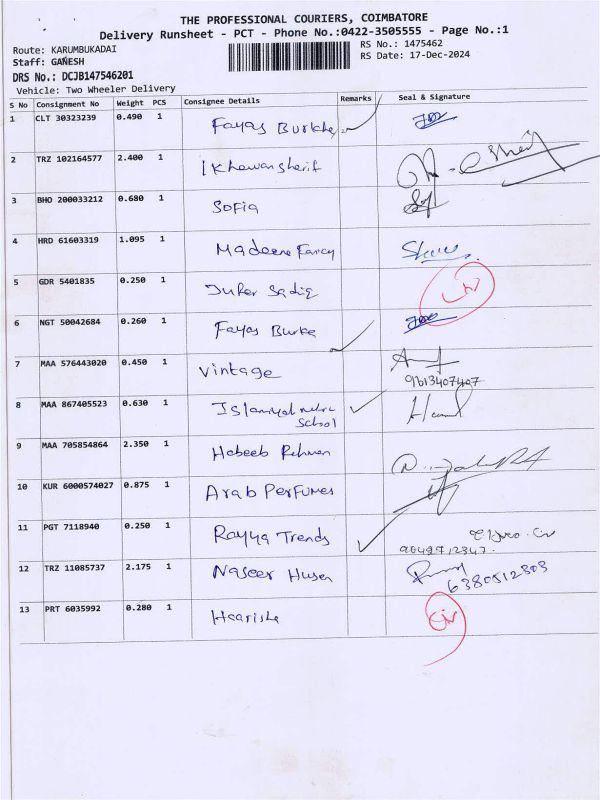 THE PROFESSIONAL COURIERS, COIMBATORE
Delivery Runsheet - PCT - Phone No.:0422-3505555 - Page No.:1
Route: KARUMBUKADAI RS No.: 1475462
Staff: GANESH RS Date: 17-Dec-2024
DRS No.: DCJB147546201
Vehicle: Two Wheeler Delivery
S No Consignment No Weight PCS Consignee Details Remarks Seal & Signature
1 CLT 30323239 0.490 1 Fayas
2 TRZ 102164577 2.400 1 Ikhewansherif
3 BHO 200033212 0.680 1 Sofia
4 HRD 61603319 1.095 1 Madeena Fancy
5 GDR 5401835 0.250 1 Sadiq
6 NGT 50042684 0.260 1 Fayas Burka
7 MAA 576443020 0.450 1 Vintage
9613407407
8 MAA 867405523 0.630 1
School
9 MAA 705854864 2.350 1 Habeeb Rehman
10 KUR 6000574027 0.875 1 Arab Perfumes
11 PGT 7118940 0.250 1 Rayya Trends
12 TRZ 11085737 2.175 1 Naseer Husen
6380512303
13 PRT 6035992 0.280 1 Haarisha